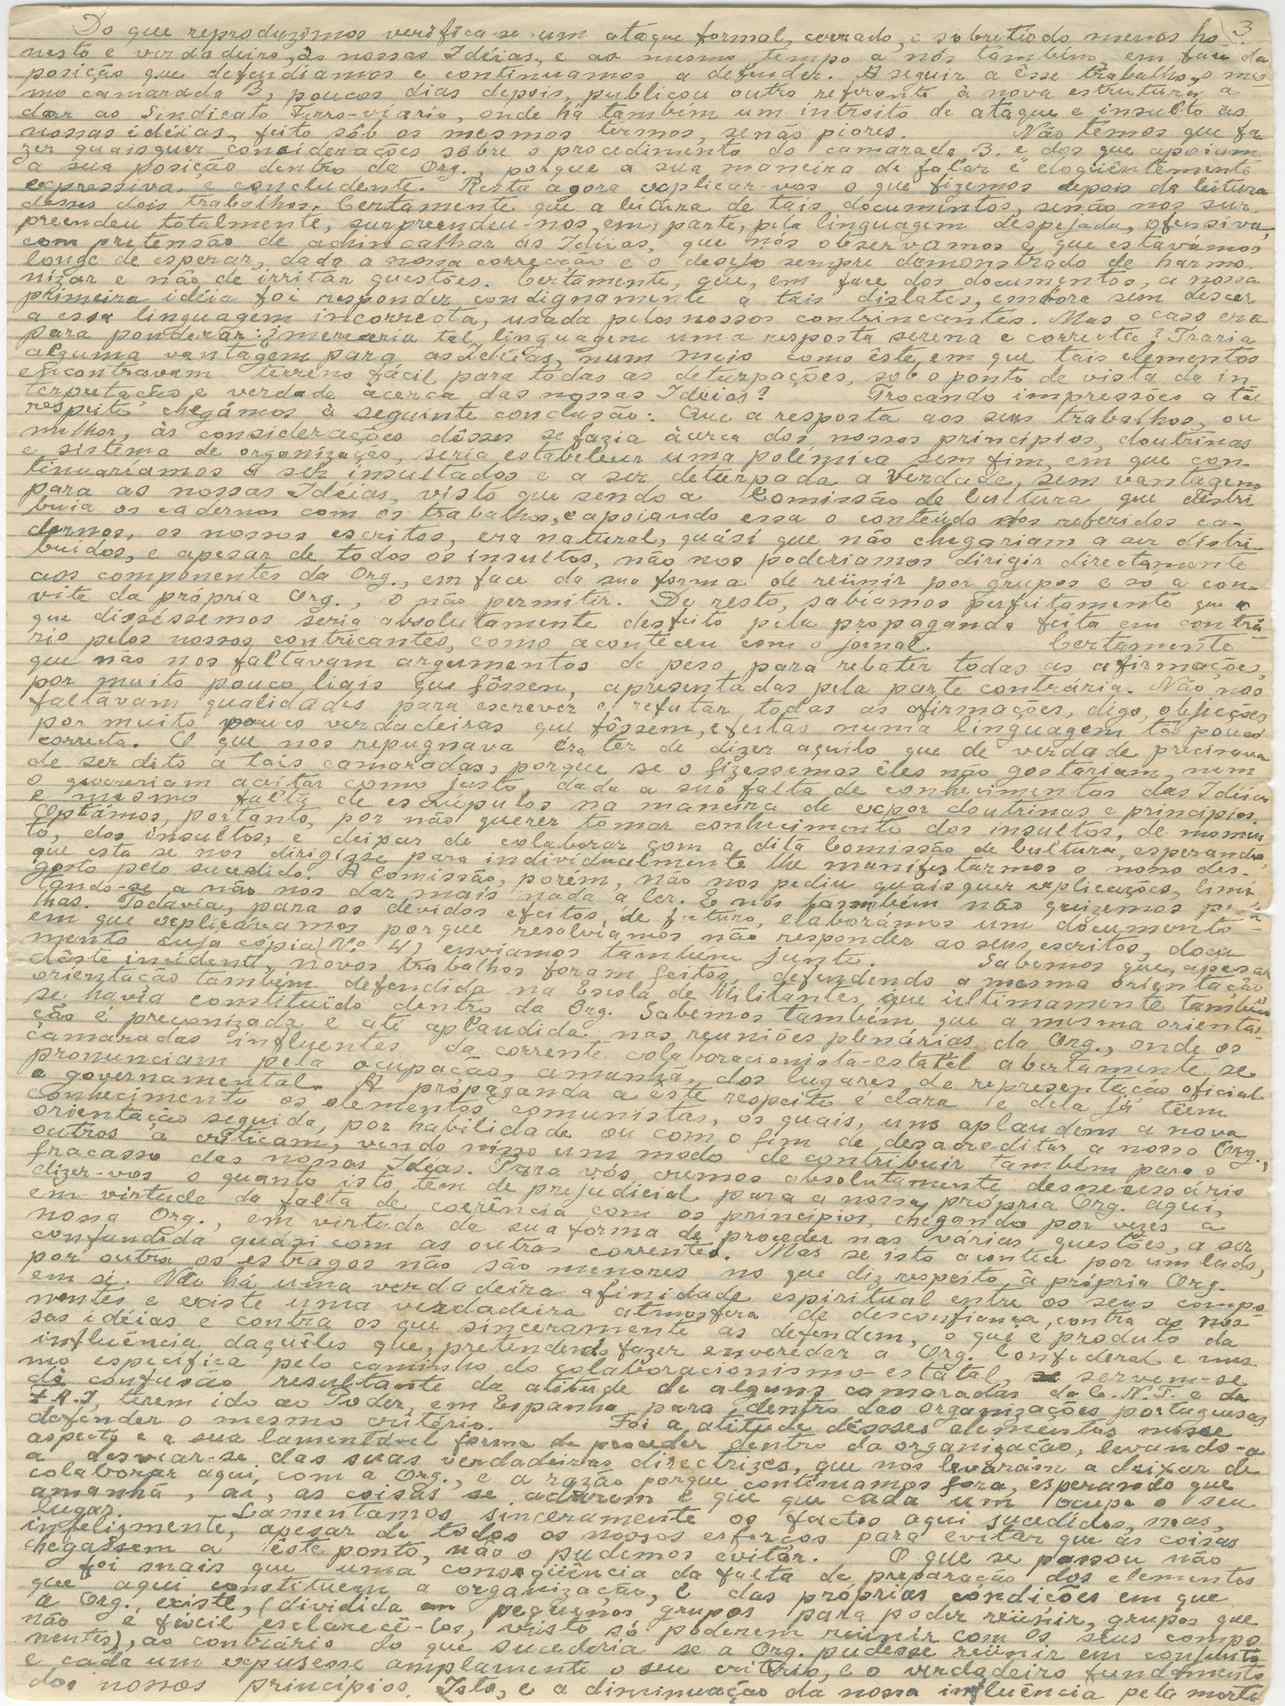 3.
Do que reproduzimos verifica-se um ataque formal, cerrado, e sobretudo menos ho
nesto e verdadeiro, às nossas Idéias, e ao mesmo tempo a nós também, em face da
posição que defendiamos e continuamos a defender. A seguir a êsse trabalho, o mes
mo camarada 3, poucos dias depois, publicou outro referente à nova estrutura a
dar ao Sindicato Ferro-viário, onde há também um intróito de ataque e insulto às
nossas idéias, feito sôb os mesmos termos, senão piores. Não temos que fa
zer quaisquer considerações sôbre o procedimento do camarada 3. e dos que apoiam
a sua posição dentro da Org. porque a sua maneira de falar é eloqüentemente
expressiva e concludente. Resta agora explicar-vos o que fizemos depois da leitura
desses dois trabalhos. Certamente que a leitura de tais documentos, senão nos sur
preendeu totalmente, surpreendeu-nos, em parte, pela linguagem despejada, ofensiva,
com pretensão de achincalhar as Idéias, que nós observamos e que estavamos,
longe de esperar, dada a nossa correcção e o desejo sempre demonstrado de harmo
nizar e não de irritar questões. Certamente, que, em face dos documentos, a nossa
primeira idéia foi responder condignamente a tais dislates, embora sem descer
a essa linguagem incorrecta, usada pelos nossos contrincantes. Mas o caso era
para ponderar: ¿mereceria tal linguagem uma resposta serena e correcta? Traria
alguma vantagem para as Idéias, num meio como êste, em que tais elementos
encontravam terreno fácil para todas as deturpações, sob o ponto de vista de in
terpretações e verdade àcerca das nossas Idéias? Trocando impressões a tal
respeito chegámos à seguinte conclusão: Que a resposta aos seus trabalhos, ou
melhor, às considerações dêsses se fazia àcerca dos nossos principios, doutrinas
e sistema de organização, seria estabelecer uma polémica sem fim, em que con
tinuariamos a ser insultados e a ser deturpada a Verdade, sem vantagens
para as nossas Idéias, visto que sendo a Comissão de Cultura que distri
buia os cadernos com os trabalhos, e apoiando essa o conteúdo dos referidos ca-
dernos, os nossos escritos, era natural, quási que não chegariam a ser distri-
buidos, e apesar de todos os insultos, não nos poderiamos dirigir directamente
aos componentes da Org., em face da sua forma de reünir por grupos e só a con-
vite da própria Org., o não permitir. De resto, sabiamos perfeitamente que o
que disséssemos seria absolutamente desfeito pela propaganda feita em contrá
rio pelos nossos contricantes, como aconteceu com o jornal. Certamente
que não nos faltavam argumentos de peso, para rebater todas as afirmações,
por muito pouco liais que fôssem, apresentadas pela parte contrária. Não nos
faltavam qualidades para escrever e refutar todas as afirmações, digo, objecções
por muito pouco verdadeiras que fôssem, e feitas numa linguagem tão pouco
correcta. O que nos repugnava era ter de dizer aquilo que de verdade precisava
de ser dito a tais camaradas, porque se o fizessemos êles não gostariam, nem
o quereriam aceitar como justo, dada a sua falta de conhecimentos das Idéias
e mesmo falta de escrúpulos na maneira de expor doutrinas e principios.
Optámos, portanto, por não querer tomar conhecimento dos insultos, de momen
to, dos insultos, e deixar de colaborar com a dita Comissão de Cultura, esperando
que esta se nos dirigisse para individualmente lhe manifestarmos o nosso des-
gosto pelo sucedido. A Comissão, porém, não nos pediu quaisquer explicações, limi
tando-se a não nos dar mais nada a ler. E nós também não quizemos
Todavia, para os devidos efeitos, de futuro, elaborámos um documento
em que explicávamos porque resolviamos não responder ao seus escritos, docu
mento cuja cópia Nº 4) enviamos também junto. Sabemos que, apesar
dêste incidente, novos trabalhos foram feitos, defendendo a mesma orientação
orientação também defendida na Escola de Militantes, que ùltimamente também
se havia constituido dentro da Org. Sabemos também que a mesma orienta-
ção é preconizada e até aplaudida nas reuniões plenárias da Org., onde os
camaradas influentes da corrente colaboracionista-estatal abertamente se
pronunciam pela ocupação, amanhã, dos lugares de representação oficial
e governamental. A propaganda a êste respeito é clara e dela já têm
conhecimento os elementos comunistas, os quais, uns aplaudem a nova
orientação seguida, por habilidade ou com o fim de desacreditar a nossa Org.,
outros a criticam, vendo nisso um modo de contribuir também para o
fracasso das nossas Idéas. Para vós cremos absolutamente desnecessário
dizer-vos o quanto isto tem de prejudicial para a nossa própria Org. aqui,
em virtude da falta de coerência com os principios, chegando por vezes a
nossa Org., em virtude da sua forma de proceder nas várias questões, a ser
confundida quási com as outras correntes. Mas se isto acontece por um lado,
por outro os estragos não são menores no que diz respeito à própria Org.
em si. Não há uma verdadeira afinidade espiritual entre os seus compo
nentes e existe uma verdadeira atmosfera de desconfiança, contra as nos-
sas idéias e contra os que sinceramente as defendem, o que é produto da
influência daquêles que, pretendendo fazer enveredar a Org. Confederal e mes
mo especifica pelo caminho do colaboracionismo-estatal, servem-se
da confusão resultante da atitude de alguns camaradas da C.N.T. e da
F.A.I, terem ido ao Poder, em Espanha para dentro das organizações portuguesas
defender o mesmo critério. Foi a atitude dêsses elementos nesse
aspecto e a sua lamentável forma de proceder dentro da organização, levando-a
a desviar-se das suas verdadeiras directrizes, que nos levaram a deixar de
colaborar aqui, com a Org., e a razão porque continuamos fora, esperando que
amanhã, aí, as coisas se aclarem e que que cada um ocupe o seu
lugar. Lamentamos sinceramente os factos aqui sucedidos, mas,
infelizmente, apesar de todos os nossos esforços para evitar que as coisas
chegassem a êste ponto, não o pudemos evitar. O que se passou não
foi mais que uma conseqüência da falta de preparação dos elementos
que aqui constituem a organização, e das próprias condições em que
a Org. existe, (dividida em pequenos grupos para poder reünir, grupos que
não é fácil esclarecê-los, visto só poderem reünir com os seus compo
nentes), ao contrário do que sucederia se a Org. pudesse reünir em conjunto
e cada um expusesse amplamente o seu critério, e o verdadeiro fundamento
dos nossos principios. Isto, e a diminuação da nossa influência pela morte